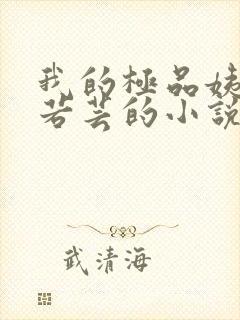 我的極品姨
若芸的小說
武清海